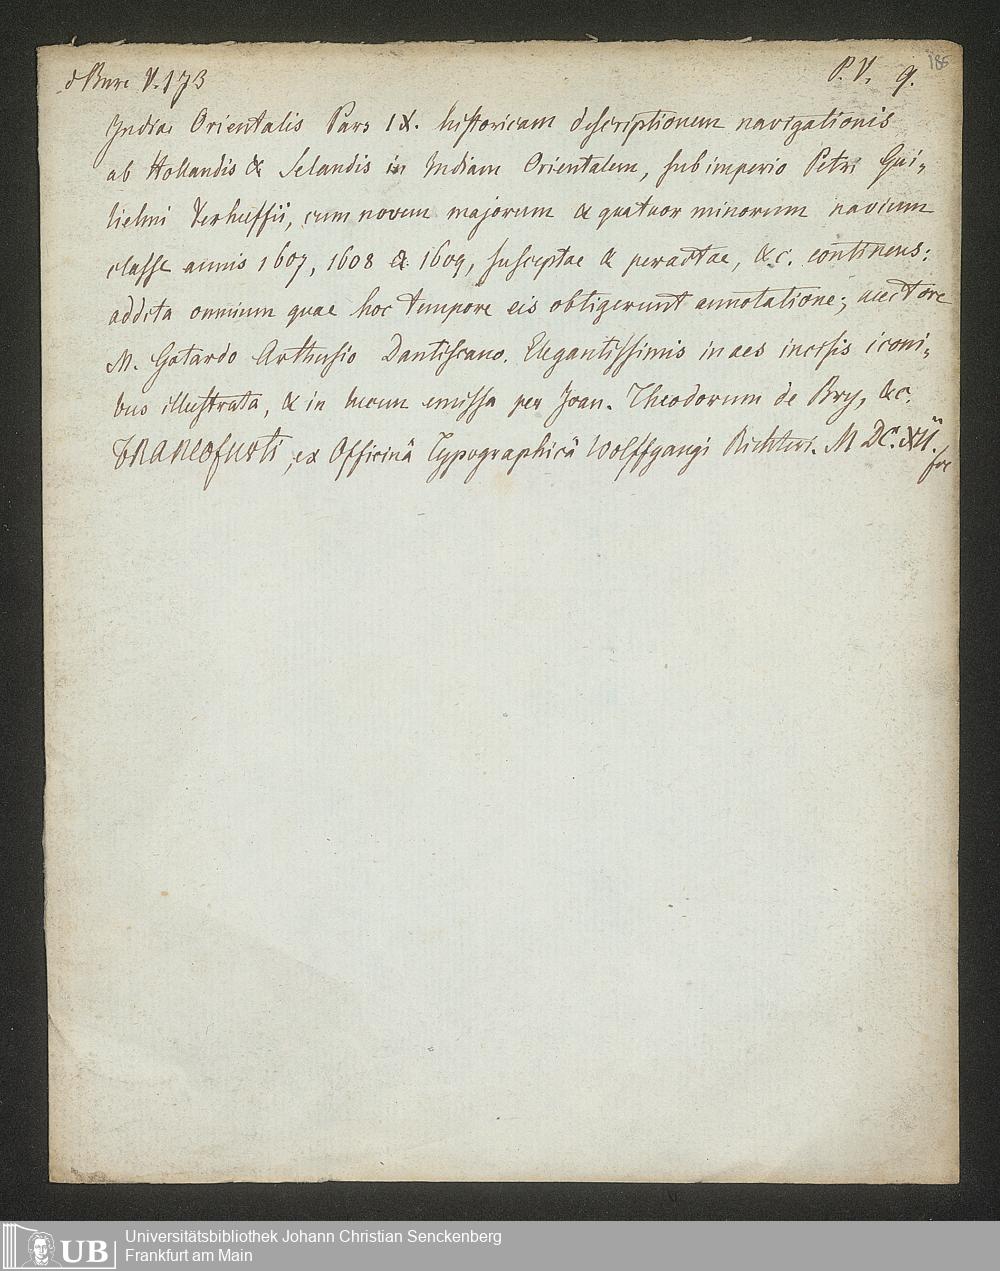 d Bure V. 173
P. V. 9.
186
Indiae Orientalis Pars IX. historicam descriptionem navigationis
ab Hollandis & Selandis in Indiam Orientalem, sub imperio Petri Gui-
lielmi Verhuffii, cum novem majorum & quatuor minorum navium
classe annis 1607, 1608 & 1609, susceptae & peractae, &c. continens:
addita omnium quae hoc tempore eis obtigerunt annotatione; auctore
M. Gotardo Arthusio Dantiscano. Elegantissimis in aes incisis iconi-
bus illustrata, & in lucem emissa per Joan. Theodorum de Bry, &c.
FRANCofurti, ex Officinâ Typographicâ Wolffgangi Richteri. M DC. XII.
fol
UB
Universitätsbibliothek Johann Christian Senckenberg
Frankfurt am Main